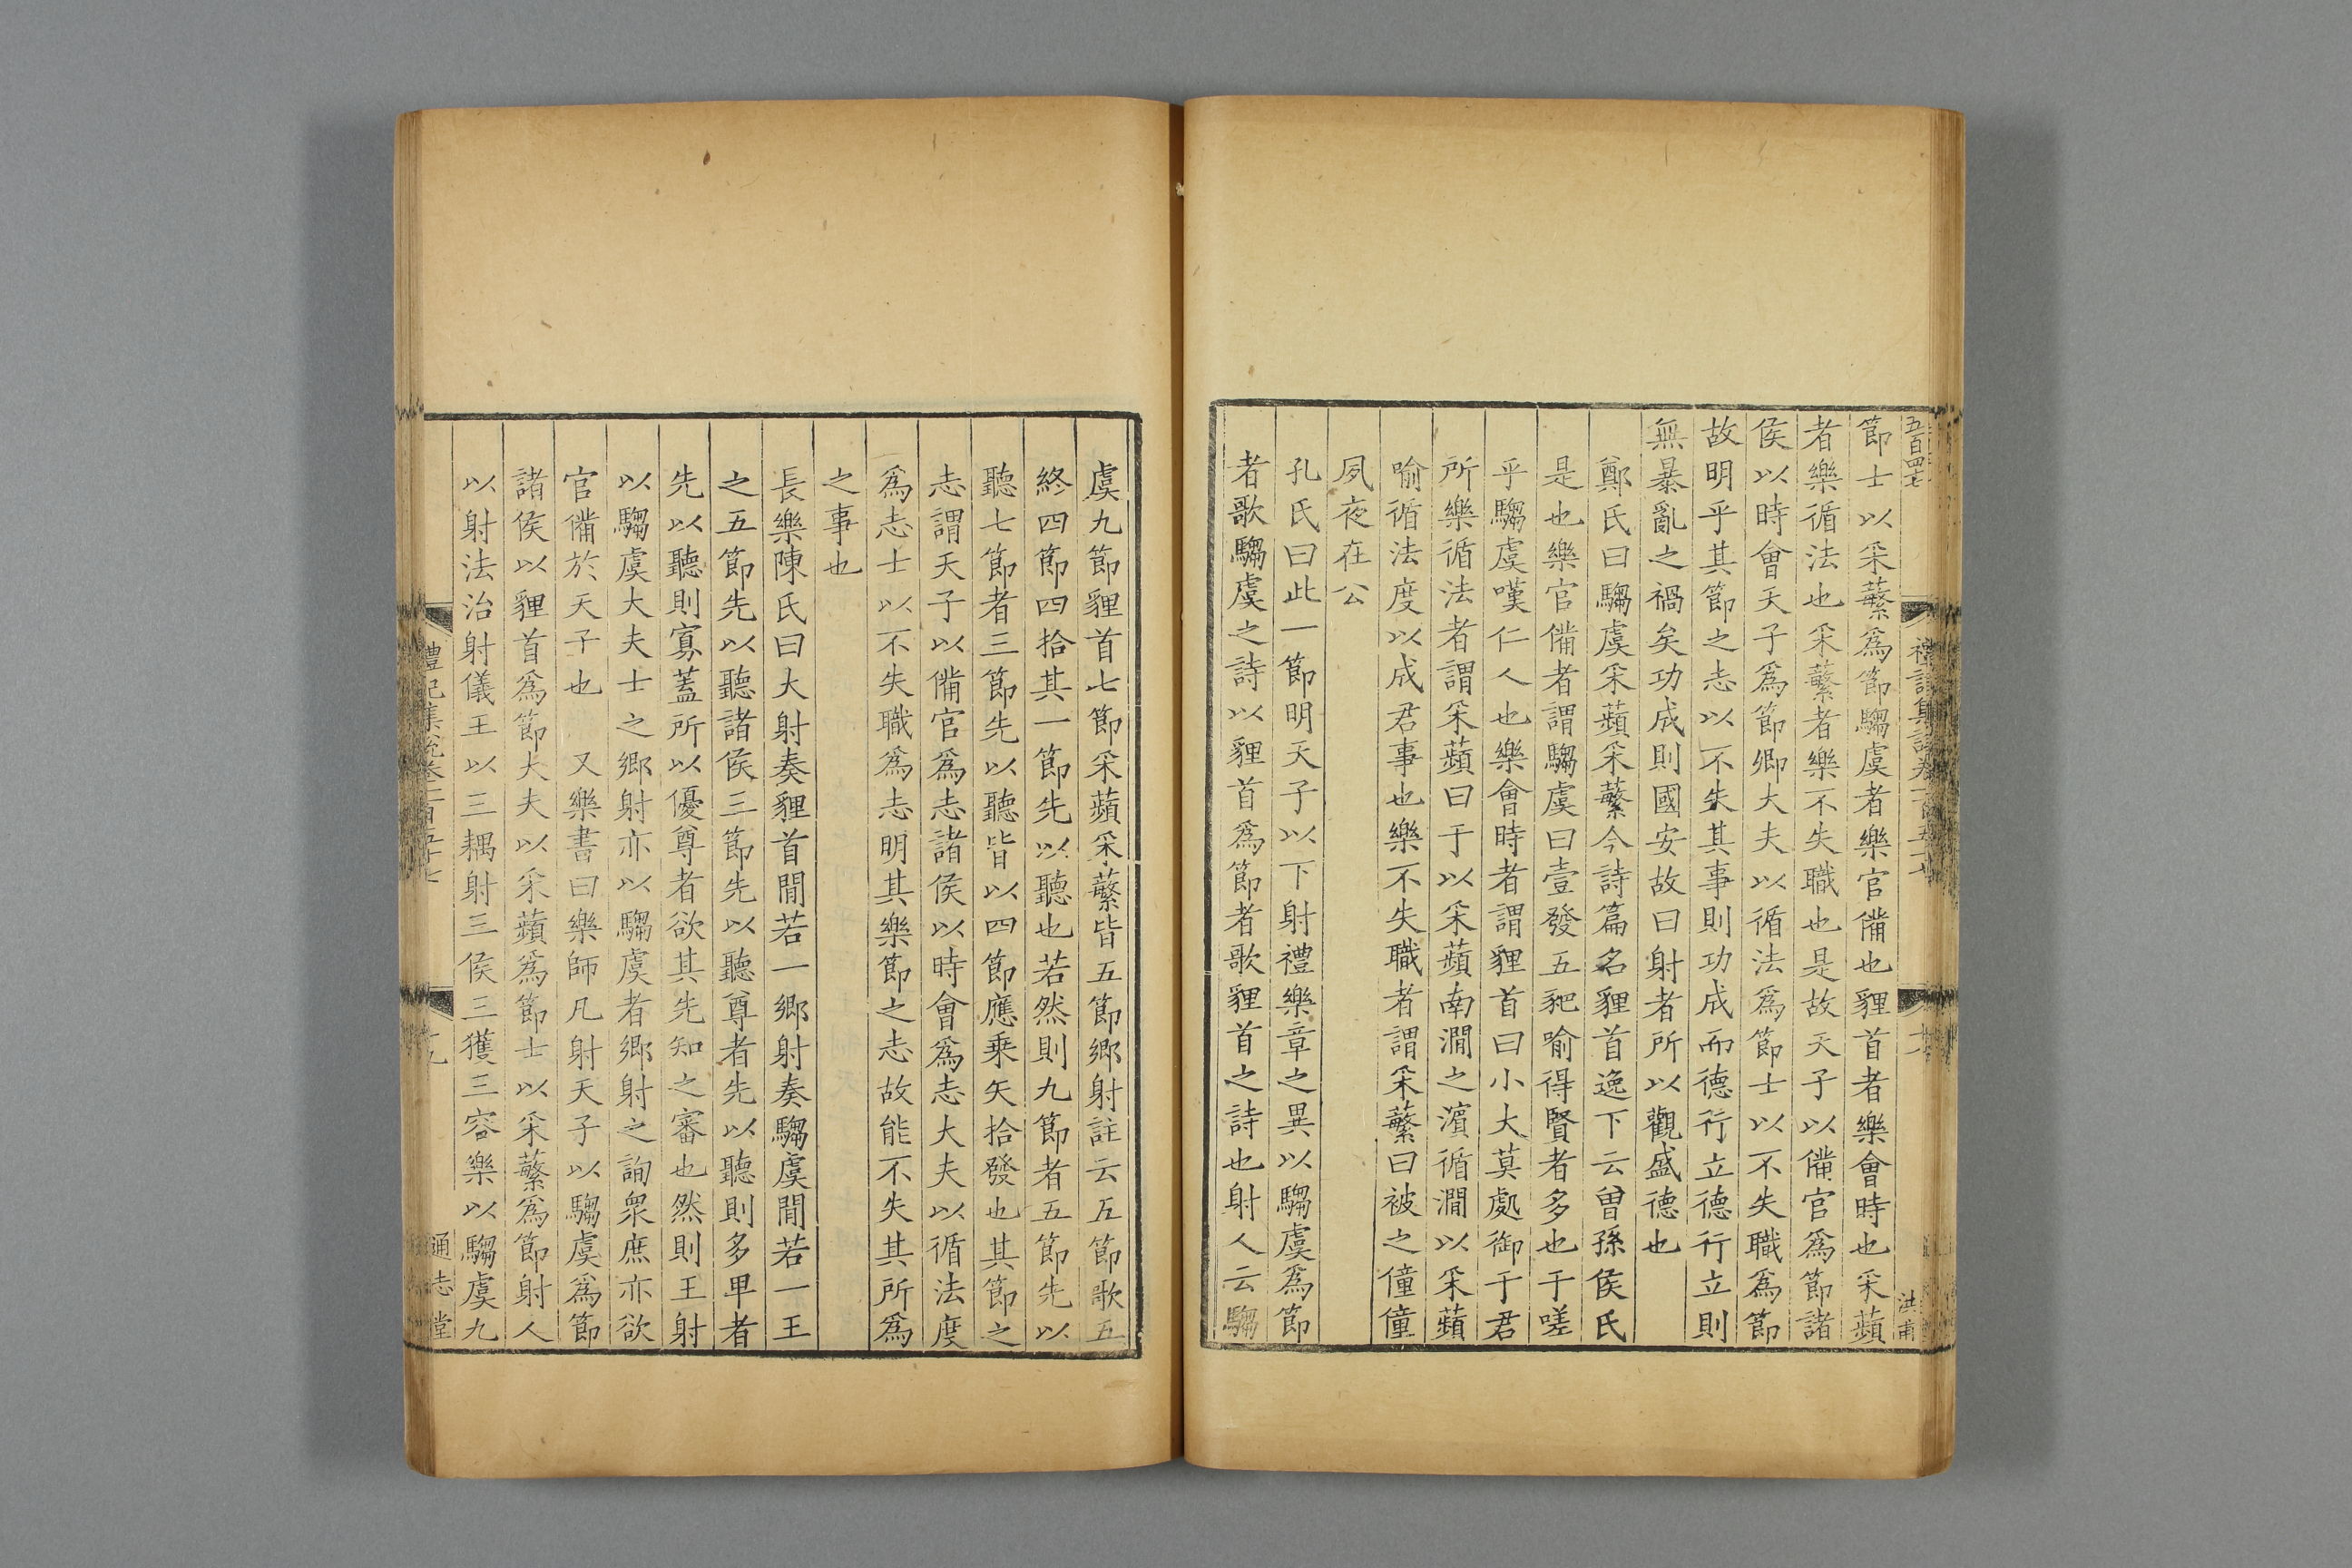 五百四七
節士以采蘩爲節騶虞者樂官備也貍首者樂會時也采蘋
者樂循法也采蘩者樂不失職也是故天子以備官爲節諸
侯以時會天子爲節卿大夫以循法爲節士以不失職爲節
故明乎其節之志以不失其事則功成而德行立德行立則
無暴亂之禍矣功成則國安故曰射者所以觀盛德也
鄭氏曰騶虞采蘋采蘩今詩篇名貍首逸下云曾孫侯氏
是也樂官備者謂騶虞曰壹發五豝喻得賢者多也于嗟
乎騶虞嘆仁人也樂會時者謂貍首曰小大莫處御于君
所樂循法者謂采蘋曰于以采蘋南澗之濵循澗以采蘋
喻循法度以成君事也樂不失職者謂采蘩曰被之僮僮
夙夜在公
孔氏曰此一節明天子以下射禮樂章之異以騶虞爲節
者歌騶虞之詩以貍首爲節者歌貍首之詩也射人云騶
虞九節貍首七節采蘋采蘩皆五節鄉射註云五節歌五
終四節四拾其一節先以聽也若然則九節者五節先以
聽七節者三節先以聽皆以四節應乗矢拾發也其節之
志謂天子以備官爲志諸侯以時會爲志大夫以循法度
爲志士以不失職爲志明其樂節之志故能不失其所爲
之事也
長樂陳氏曰大射奏貍首閒若一鄉射奏騶虞閒若一王
之五節先以聽諸侯三節先以聽尊者先以聽則多卑者
先以聽則寡蓋所以優尊者欲其先知之審也然則王射
以騶虞大夫士之鄉射亦以騶虞者鄉射之詢衆庶亦欲
官備於天子也　又樂書曰樂師凡射天子以騶虞爲節
諸侯以貍首爲節大夫以采蘋爲節士以采蘩爲節射人
以射法治射儀王以三耦射三侯三獲三容樂以騶虞九
禮記集說卷一百五十七
十九
通志堂